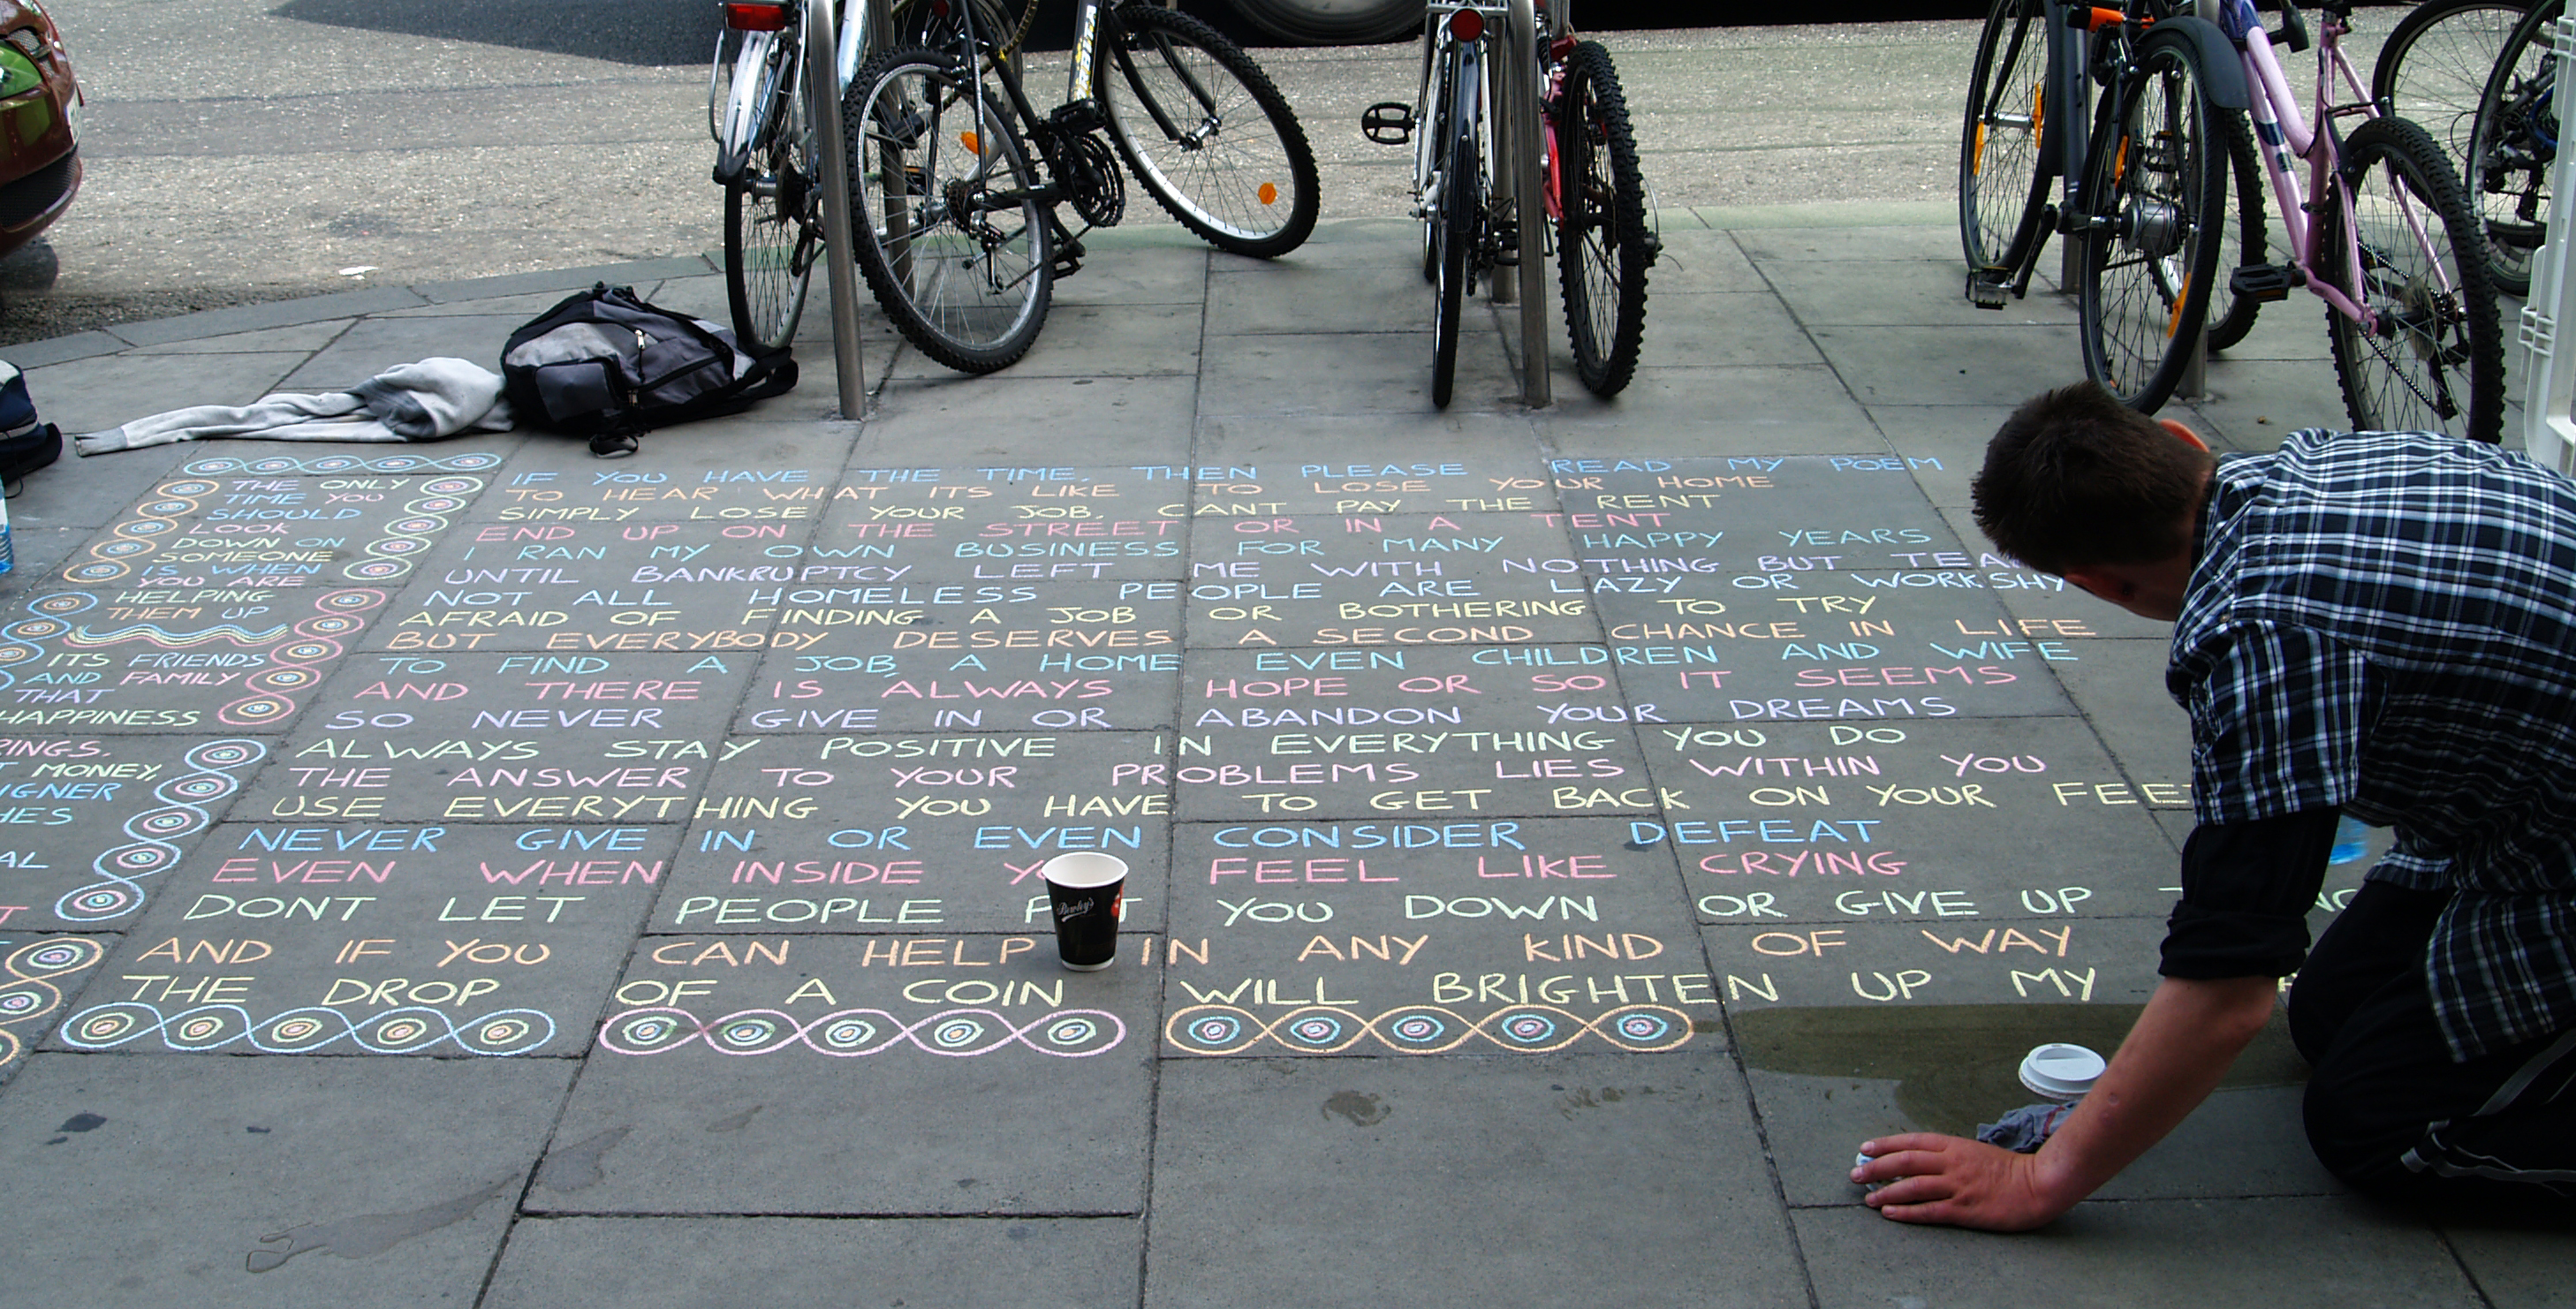 THE ONLY
TIME YOU
SHOULD
LOOK
DOWN ON
SOMEONE
IS WHEN
YOU ARE
HELPING
THEM UP
ITS FRIENDS
AND FAMILY
THAT
HAPPINESS
MONEY,
IF YOU HAVE THE TIME, THEN PLEASE READ MY POEM
TO HEAR WHAT ITS LIKE TO LOSE YOUR HOME
SIMPLY LOSE YOUR JOB, CANT PAY THE RENT
END UP ON THE STREET OR IN A TENT
I RAN MY OWN BUSINESS FOR MANY HAPPY YEARS
UNTIL BANKRUPTCY LEFT ME WITH NOTHING BUT
NOT ALL HOMELESS PEOPLE ARE LAZY OR WORKSHY
AFRAID OF FINDING A JOB OR BOTHERING TO TRY
BUT EVERYBODY DESERVES A SECOND CHANCE IN LIFE
TO FIND A JOB, A HOME EVEN CHILDREN AND WIFE
AND THERE IS ALWAYS HOPE OR SO IT SEEMS
SO NEVER GIVE IN OR ABANDON YOUR DREAMS
ALWAYS STAY POSITIVE IN EVERYTHING YOU DO
THE ANSWER TO YOUR PROBLEMS LIES WITHIN YOU
USE EVERYTHING YOU HAVE TO GET BACK ON YOUR FEET
NEVER GIVE IN OR EVEN CONSIDER DEFEAT
EVEN WHEN INSIDE YOU FEEL LIKE CRYING
DONT LET PEOPLE PUT YOU DOWN OR GIVE UP
AND IF YOU CAN HELP IN ANY KIND OF WAY
THE DROP OF A COIN WILL BRIGHTEN UP MY
Bewley's